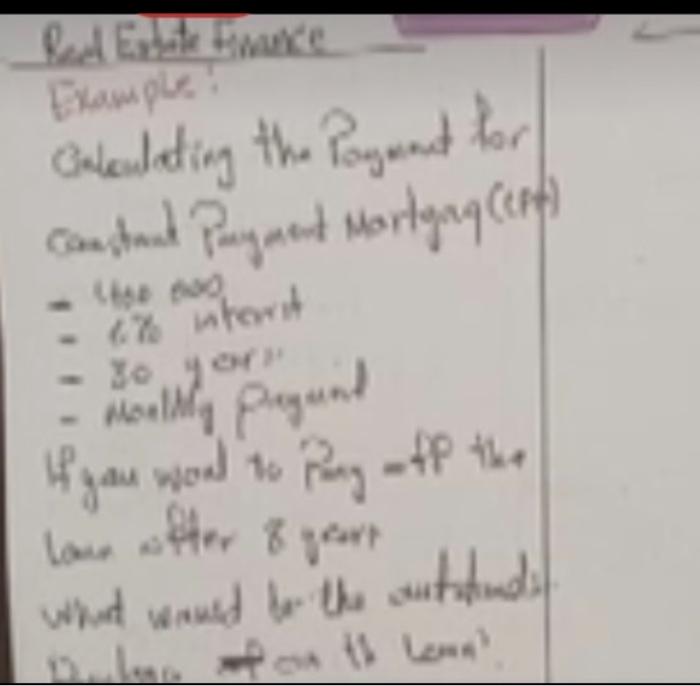 Real Estate Finance
Example:
Calculating the Payment for
Constant Payment Mortgag (CPM)
- 400 000
- 6% interest
- 30 years
- Monthly Payment
If you want to Pay off the
loan after 8 years
what would be the outstandi
on th loan?